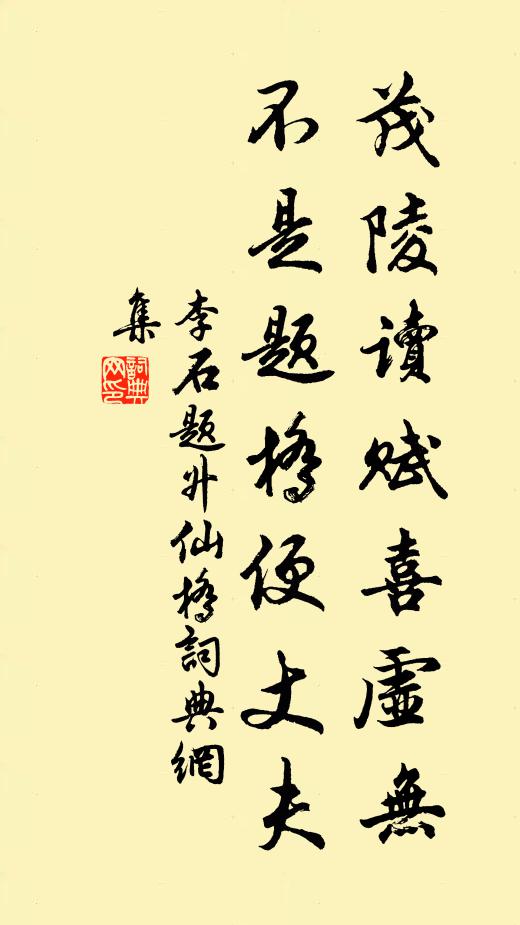 茂陵讀賦喜虛無
不是題橋便丈夫
李石題升仙橋詞典網
集
詞典
网印